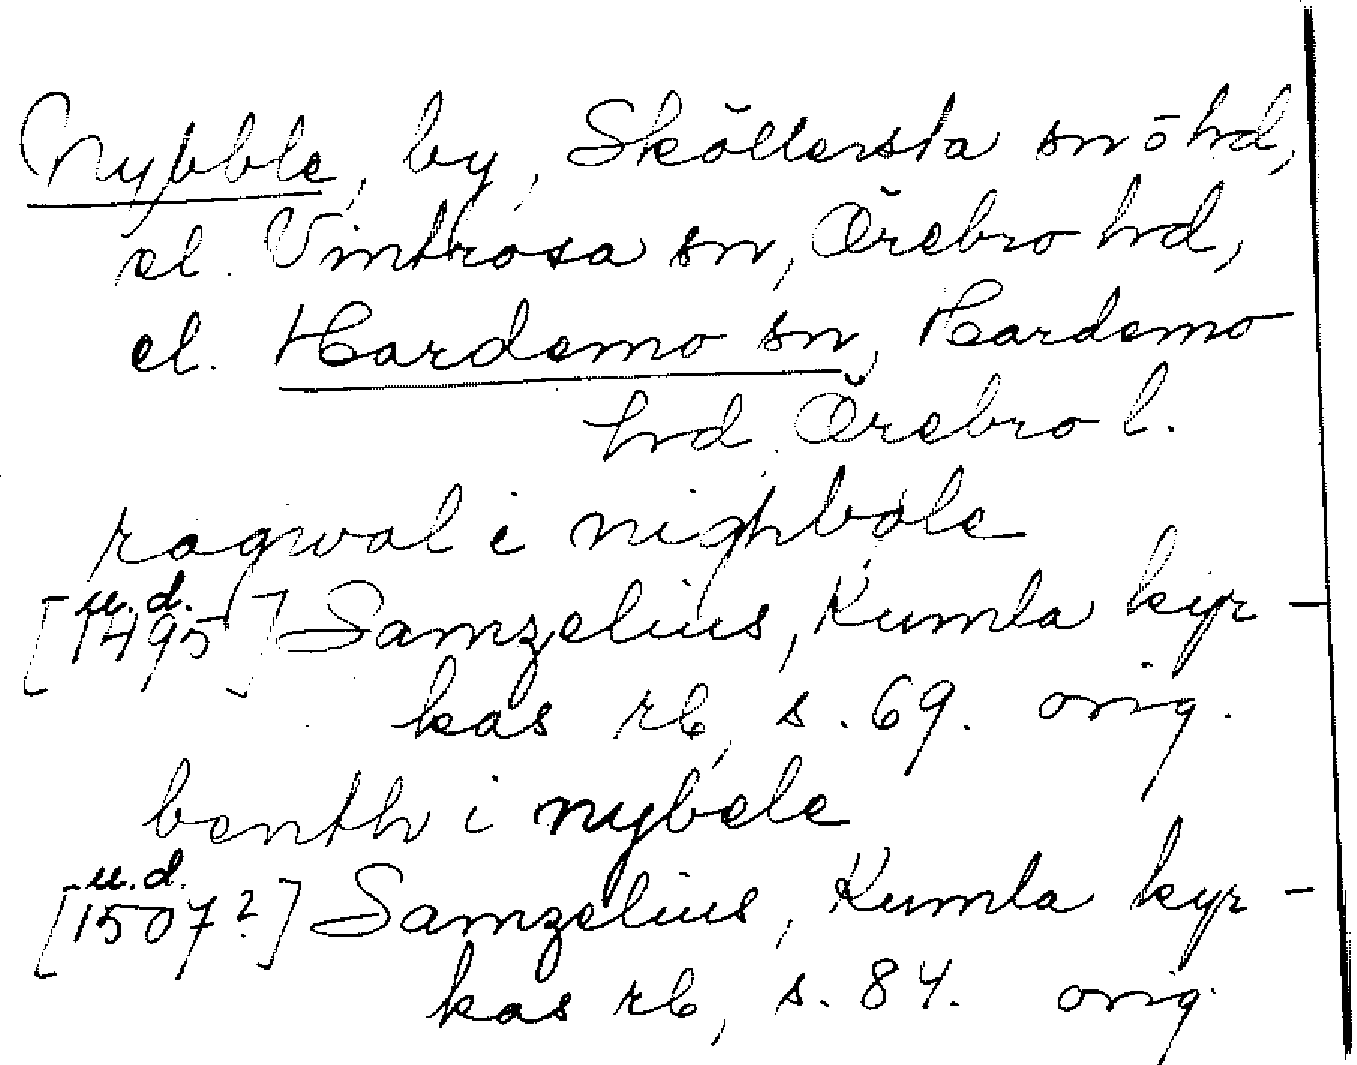 Nybble, by, Sköllersta sn ö hd,
el. Vintrosa sn, Örebro hd,
el. Hardemo sn, Hardemo
hd. Örebro l.
ragwal i nighbole
[u.d. 1495] Samzelius, Kumla kyr-
kas rb, s. 69. orig.
benth i nybele
[u.d. 1507?] Samzelius, Kumla kyr-
kas rb, s. 84. orig